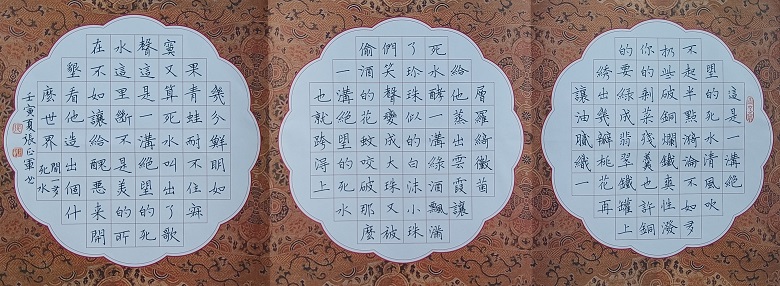 這是一溝絕
望的死水清風吹
不起半點漪淪不如多
扔些破銅爛鐵爽性潑
你的剩菜殘羹也許銅
的要綠成翡翠鐵罐上
綉出幾瓣桃花再
讓油膩織一
層羅綺黴菌
給他蒸出雲霞讓
死水酵一溝綠酒飄滿
了珍珠似的白沫小珠
們笑聲變成大珠又被
偷酒的花蚊咬破那麼
一溝絕望的死水
也就跨得上
幾分鮮明如
果青蛙耐不住寂
寞又算死水叫出了歌
聲這是一溝絕望的死
水這里斷不是美的所
在不如讓給醜惡来開
墾看他造出個什
麼世界
聞一多
死水
壬寅夏張正軍书